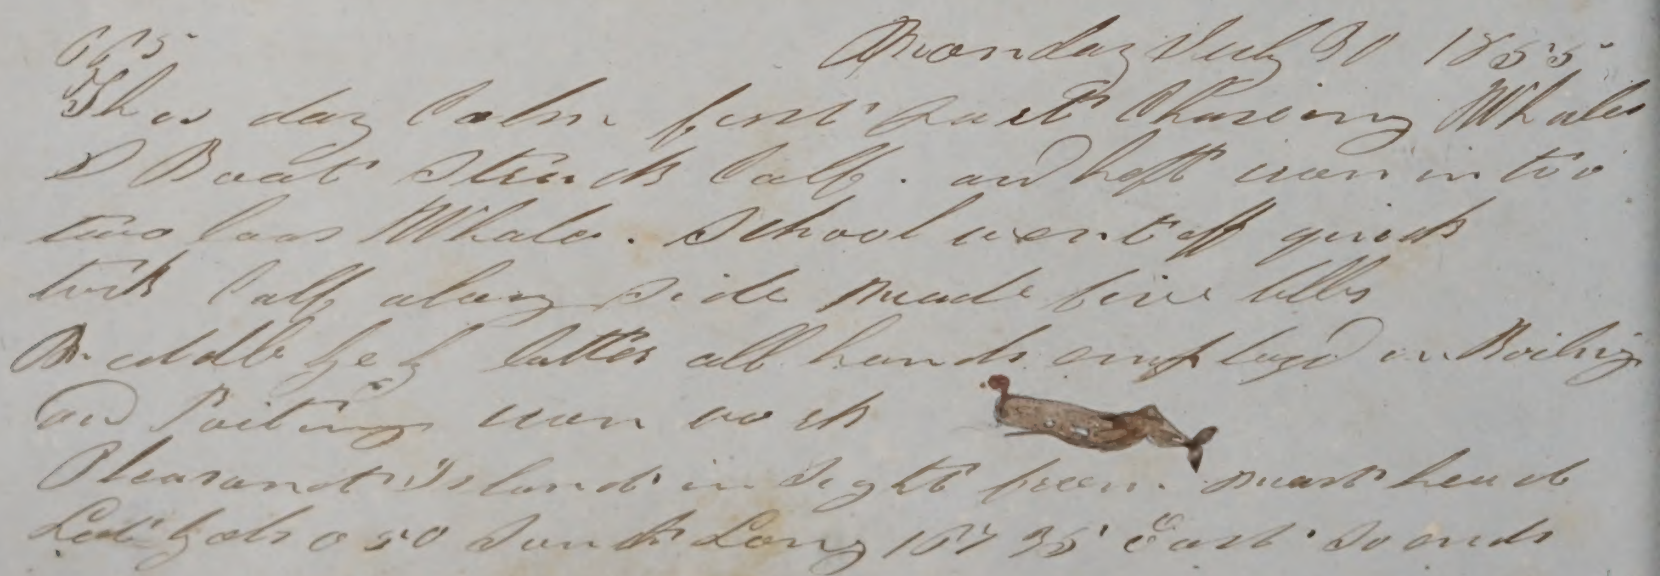 665 Monday July 30 1855
This day Calm first Part Chaseing Whales
S Boat Struck Calf. and left iron in too
two Whales. School went off quick
took Calf along Side made five bbls
latter all hands employd on Boiling
and iron work
Pleasant Island in Sight from mast head
Lat 0 50 South Long 167 35 East So ends